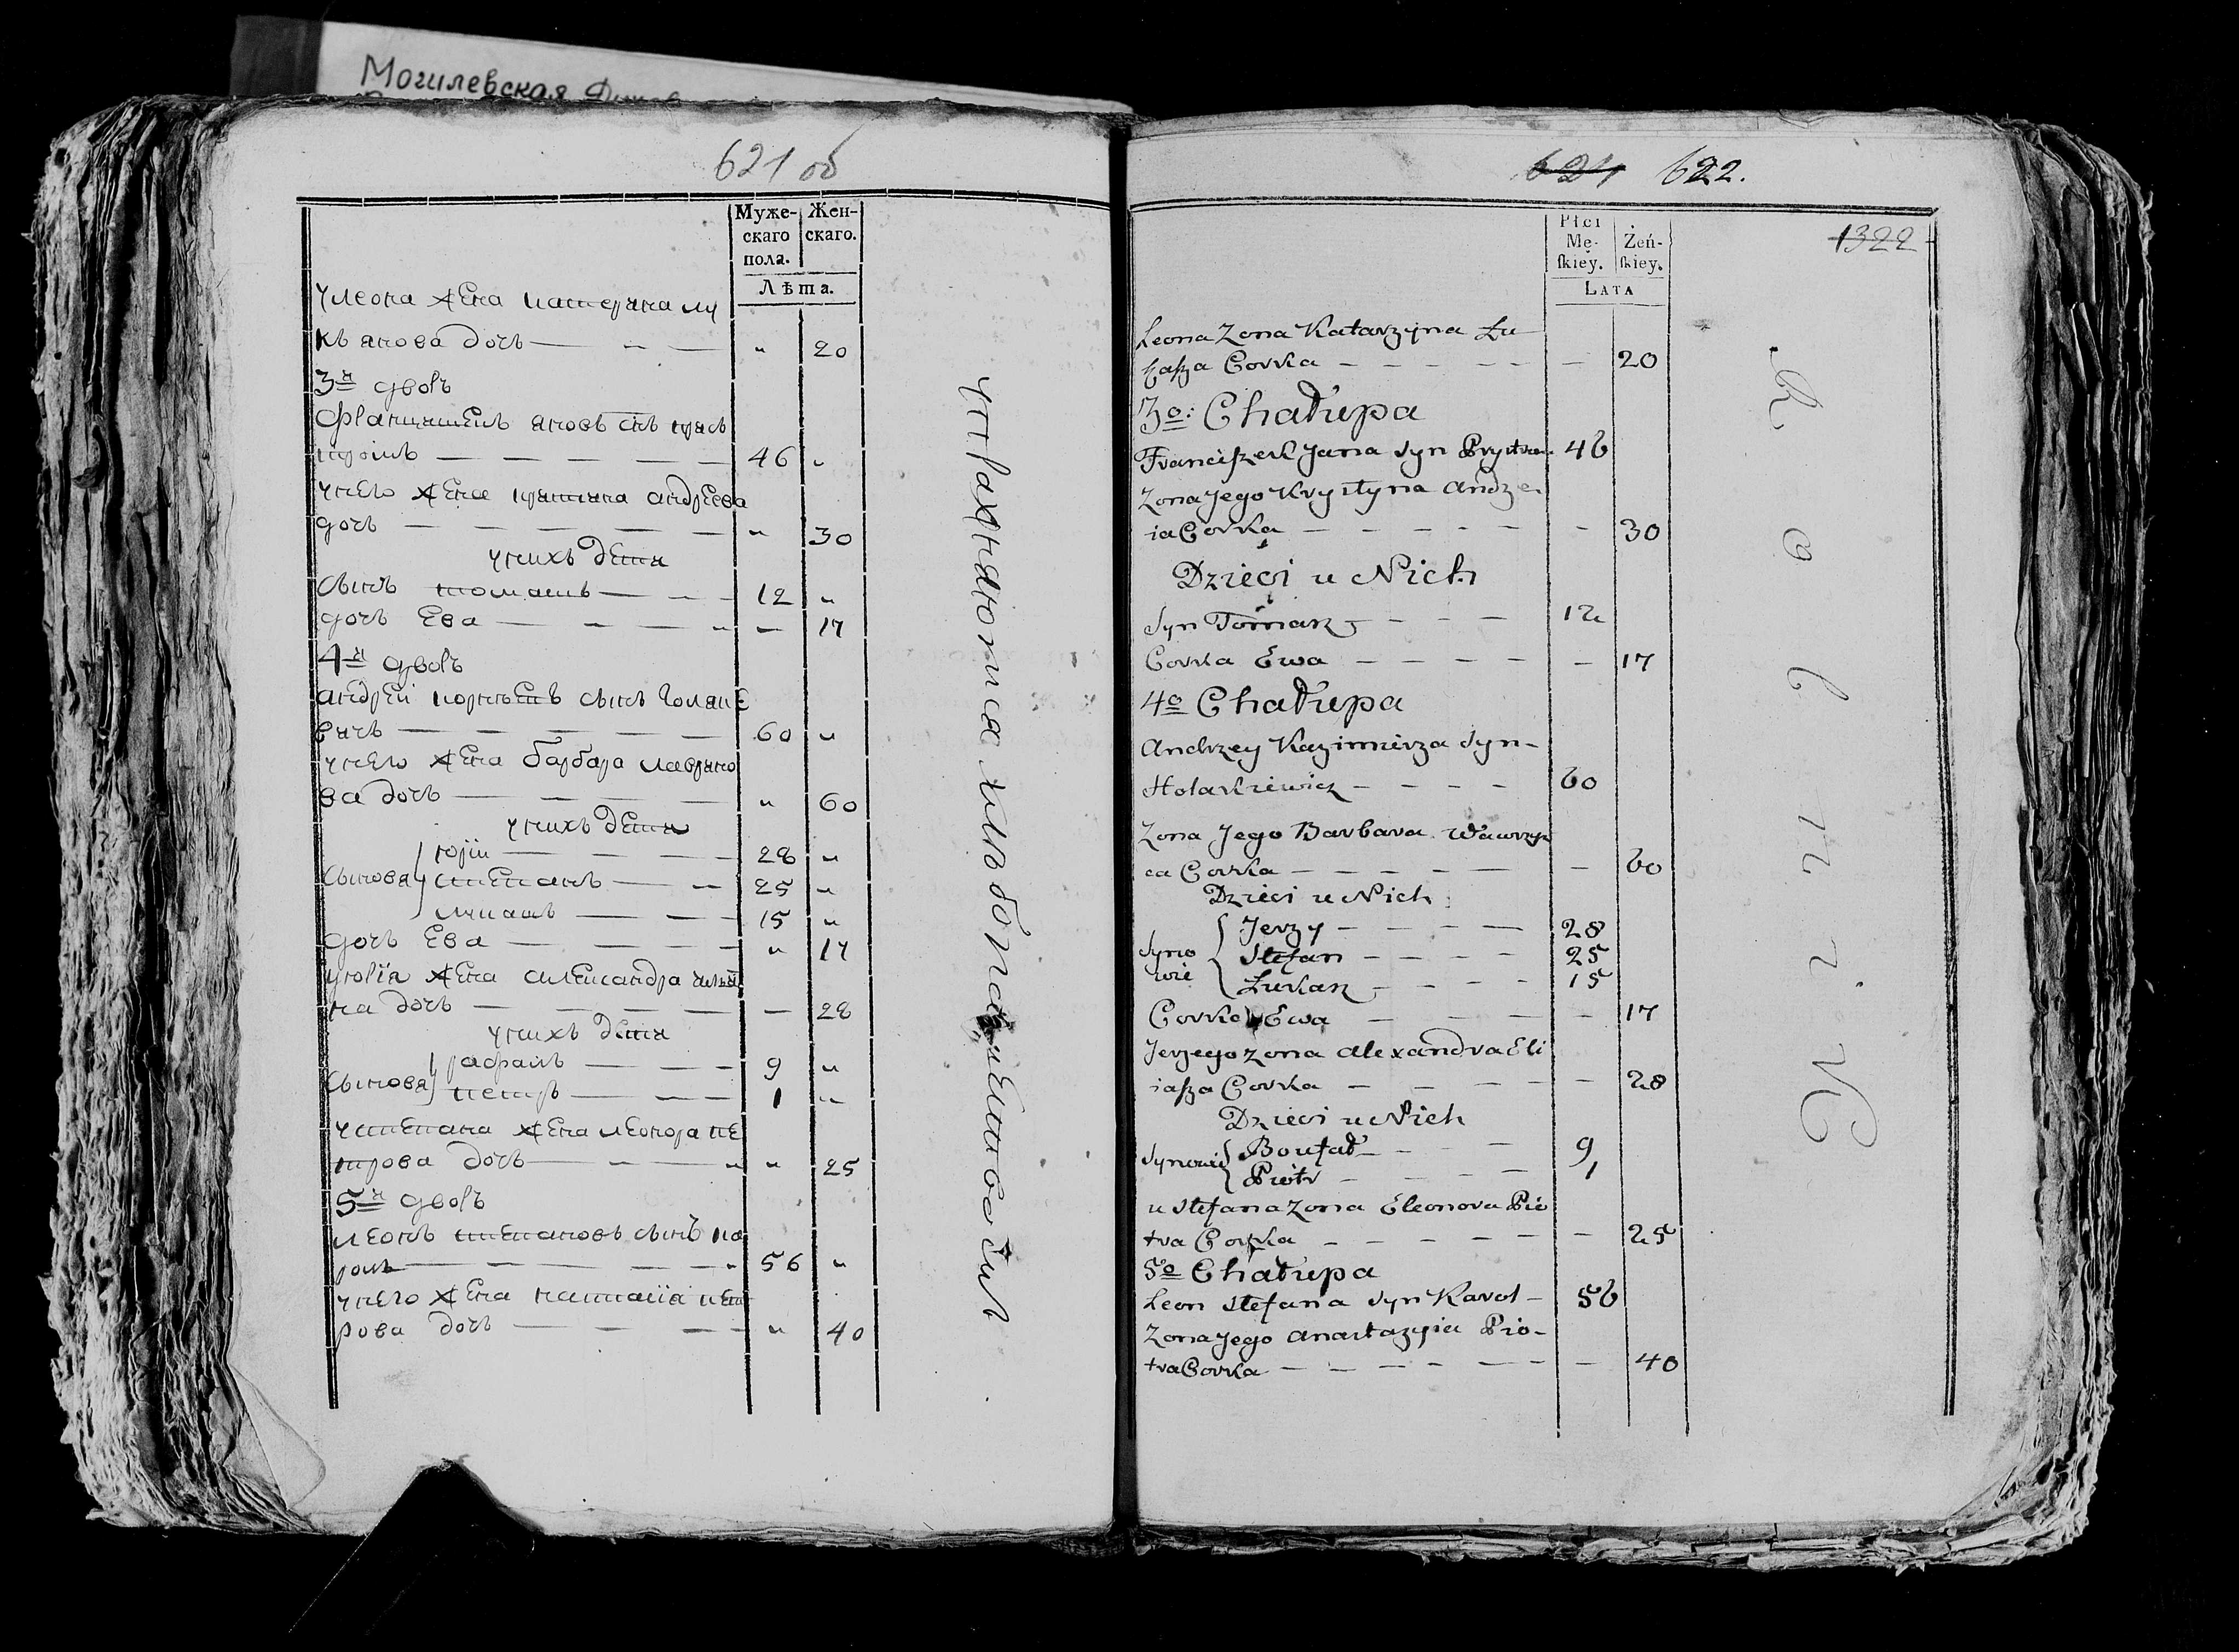 Могилевская
621 об
Муже-
скаго
пола.
Жен-
скаго.
Лѣта.
улеона жена катерина лу
кьянова дочь — — — " 20
3й дворъ
Францишекъ яновъ снъ
— — — — — 46 "
унего жена андреева
дочь — — — — — " 30
унихъ дети
сынъ томашъ — — — 12 "
дочь Ева — — — — 17
4й дворъ
андрей сынъ голяке
вичъ — — — — — 60 "
унего жена барбара лаврино
ва дочь — — — — " 60
унихъ дети
сыновя
юрiи — — — — 28 "
степанъ — — 25 "
лукашъ — — — 15 "
дочь Ева — — — — " 17
уюрiя жена александра
на дочь — — — — — 28
унихъ дети
сыновя
— — — 9 "
петръ — — — 1 "
устепана жена леонора пе
трова дочь — — " " 25
5й дворъ
леонъ степановъ сынъ ка
роль — — — — " 56 "
унего жена настасiя пет
рова дочь — — — " 40
упражняются хлебопашеством
624 622.
1322
Płci
Mę-
ſkiey.
Żeń-
ſkiey.
LATA
Leona Zona Katarzyna Łu
kaſza Corka — — — — — — 20
3o: Chałupa
Franciſzek Jana Syn 46
Zona Jego Krystyna Andze
ia Corka — — — — — — 30
Dzieci u Nich
Syn Tomasz — — — 12
Corka Ewa — — — — — 17
4o Chałupa
Andrzey Kazimierza Syn —
Holakiewicz — — — — 60
Zona Jego Barbara Wawrzyn
ca Corka — — — — — — 60
Dzieci u Nich
Syno
wie
Jerzy — — — — 28
Stefan — — — — 25
Łukasz — — — — 15
Corka Ewa — — — — 17
Jerzego Zona Alexandra Eli
iaſza Corka — — — — — 28
Dzieci u Nich
Synowie
Boufał — — — 9
Piotr — — — — 1
u Stefana Zona Eleonora Pio
tra Corka — — — — — — 25
5o Chałupa
Leon Stefana Syn Karol — 56
Zona Jego Anastazyia Pio-
tra Corka — — — — — — — 40